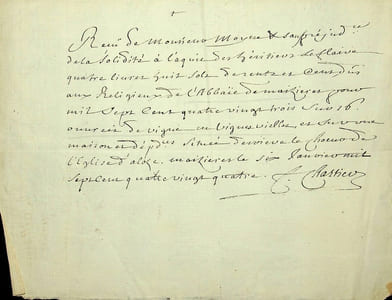 Reçu de Monsieur Moyne & sans préjud.ce
de la solidité à l'aquit des héritiers
quatre livres huit sols de rente et Cens dûs
aux Religieux de L'Abbaïe de maizieres pour
mil Sept Cent quatre vingt trois Sur 16
ouvrées de vigne en vigne vielle et Sur une
maison et dépdces Située derriere le Choeur de
L'Eglise d'aloze. maizieres le six Janvier mil
sept cent quatre vingt quatre. f. Chartier